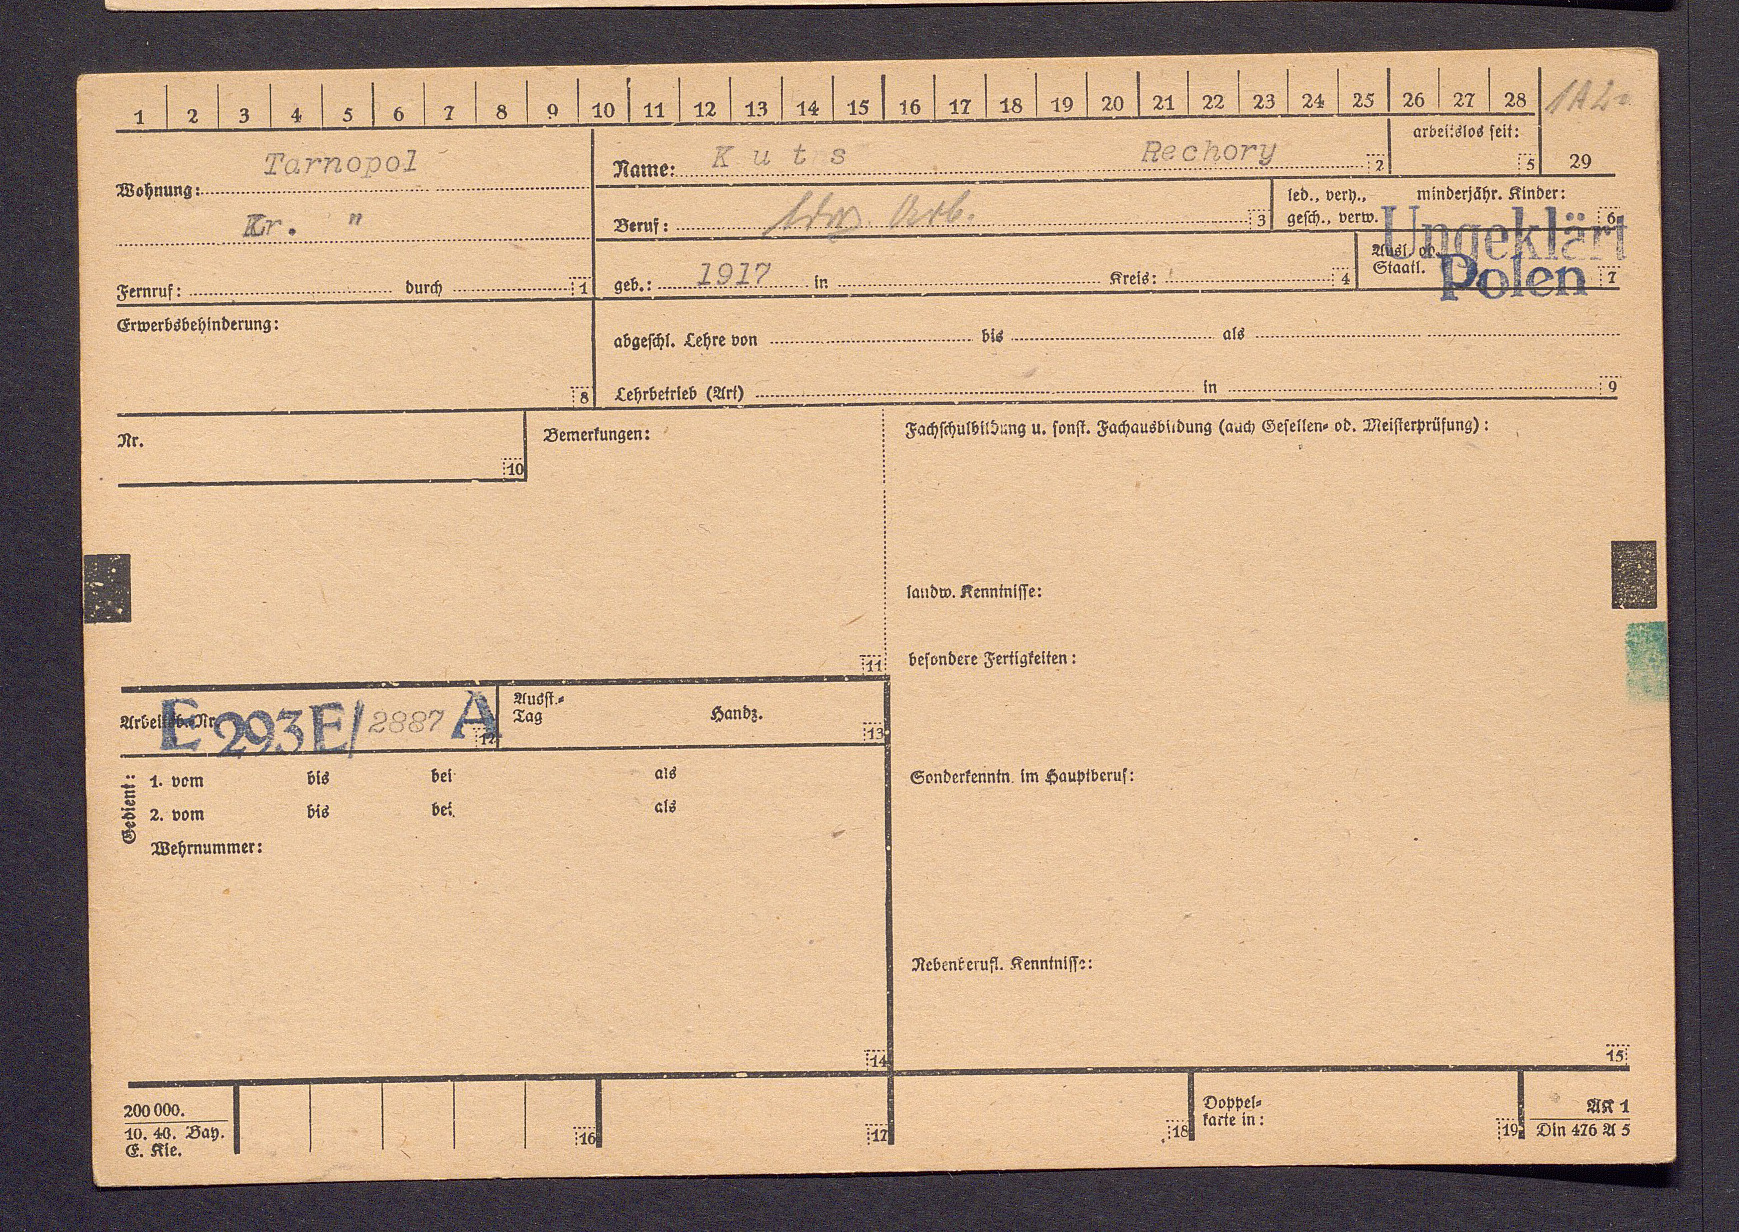 1 2 3 4 5 6 7 8 9 10 11 12 13 14 15 16 17 18 19 20 21 22 23 24 25 26 27 28 29
Tarnopol
Wohnung:
Kr. "
Fernruf: durch 1
Name: K u t s Rechory 2
arbeitslos seit: 5
Beruf: ldw. Arb. 3
led., verh., minderjähr. Kinder:
gesch., verw. 6
geb.: 1917 in Kreis: 4
Ausl. od.
Staatl. 7
Ungeklärt
Polen
Erwerbsbehinderung: 8
abgeschl. Lehre von bis als
Lehrbetrieb (Art) in 9
Nr. 10
Bemerkungen: 11
Fachschulbildung u. sonst. Fachausbildung (auch Gesellen- od. Meisterprüfung):
landw. Kenntnisse:
besondere Fertigkeiten:
Arbeitsb.-Nr. E 293E/2887 A 12
Ausst.-
Tag Handz. 13
Gedient:
1. vom bis bei als
2. vom bis bei als
Wehrnummer: 14
Sonderkenntn. im Hauptberuf:
Nebenberufl. Kenntnisse: 15
200 000.
10. 40. Bay.
E. Kle.
16 17 18
Doppel-
karte in: 19
AK 1
Din 476 A 5